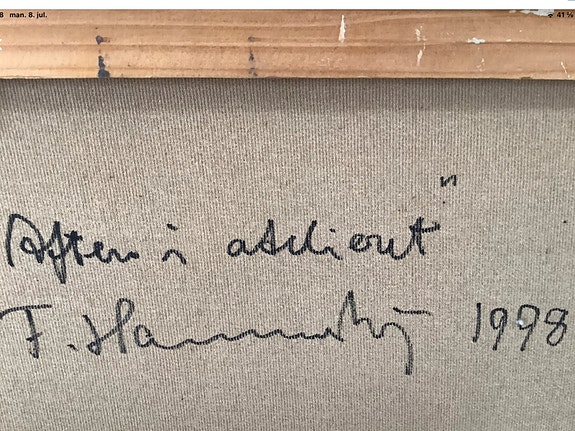 8 man. 8. jul. 41 %
Aften i ateliout"
F. Hammer 1998